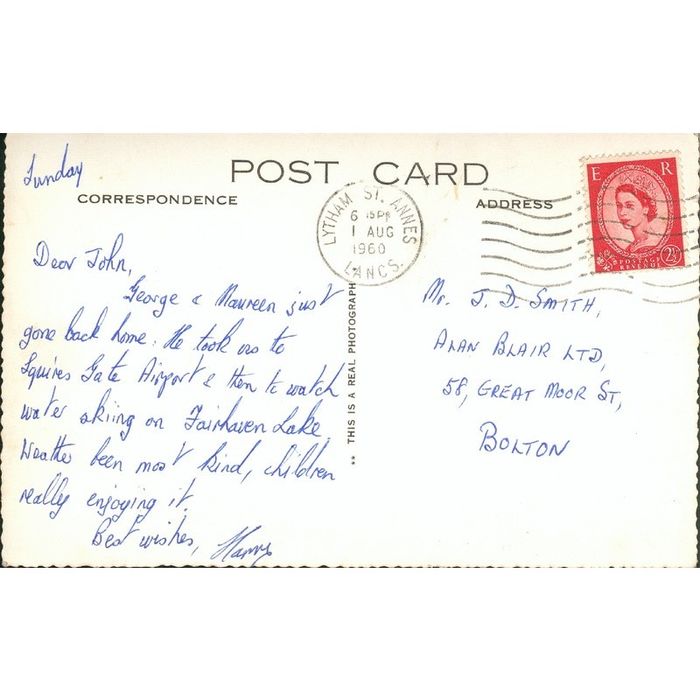 Sunday
POST CARD
CORRESPONDENCE
ADDRESS
LYTHAM ST. ANNES
6 15PM
1 AUG
1960
LANCS.
E R
POSTAGE
REVENUE
2½
Dear John,
George & Maureen just
gone back home. He took us to
Squires Gate Airport & then to watch
water skiing on Fairhaven Lake.
Weather been most kind, children
really enjoying it.
Best wishes, Harry
** THIS IS A REAL PHOTOGRAPH
Mr. J. D. SMITH,
ALAN BLAIR LTD,
58, GREAT MOOR ST,
BOLTON